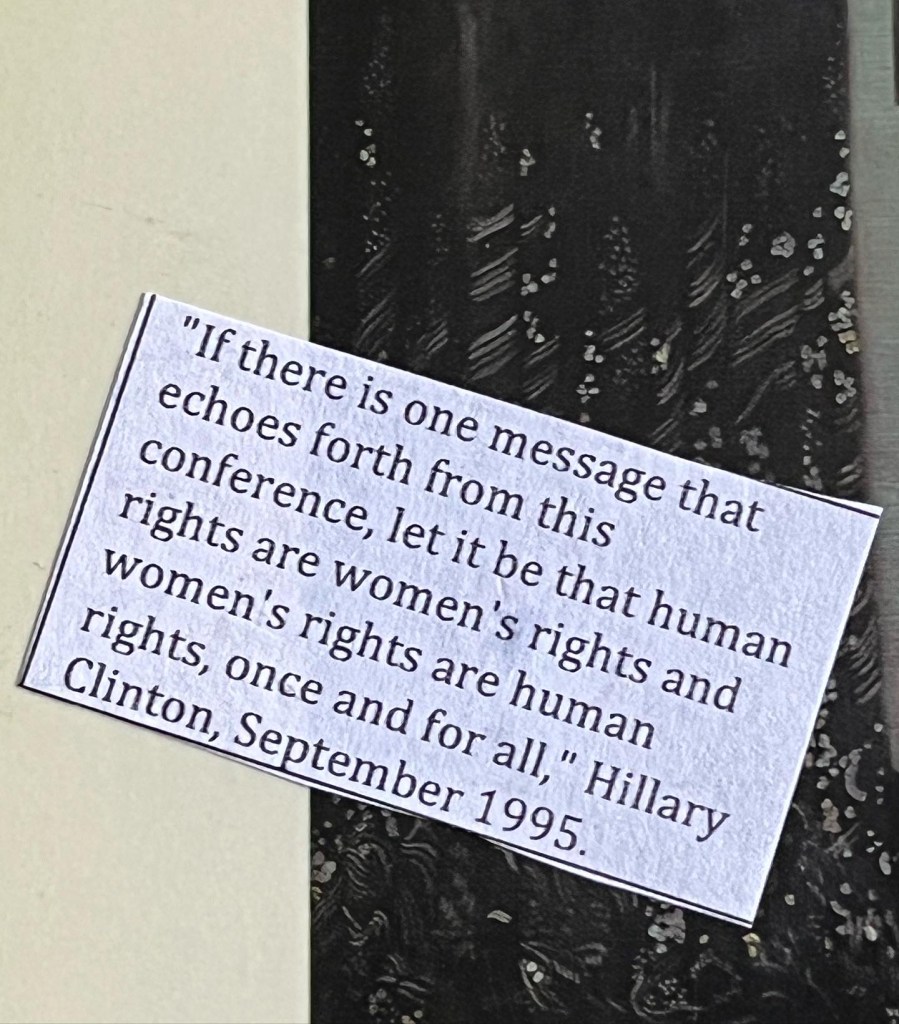 "If there is one message that
echoes forth from this
conference, let it be that human
rights are women's rights and
women's rights are human
rights, once and for all," Hillary
Clinton, September 1995.